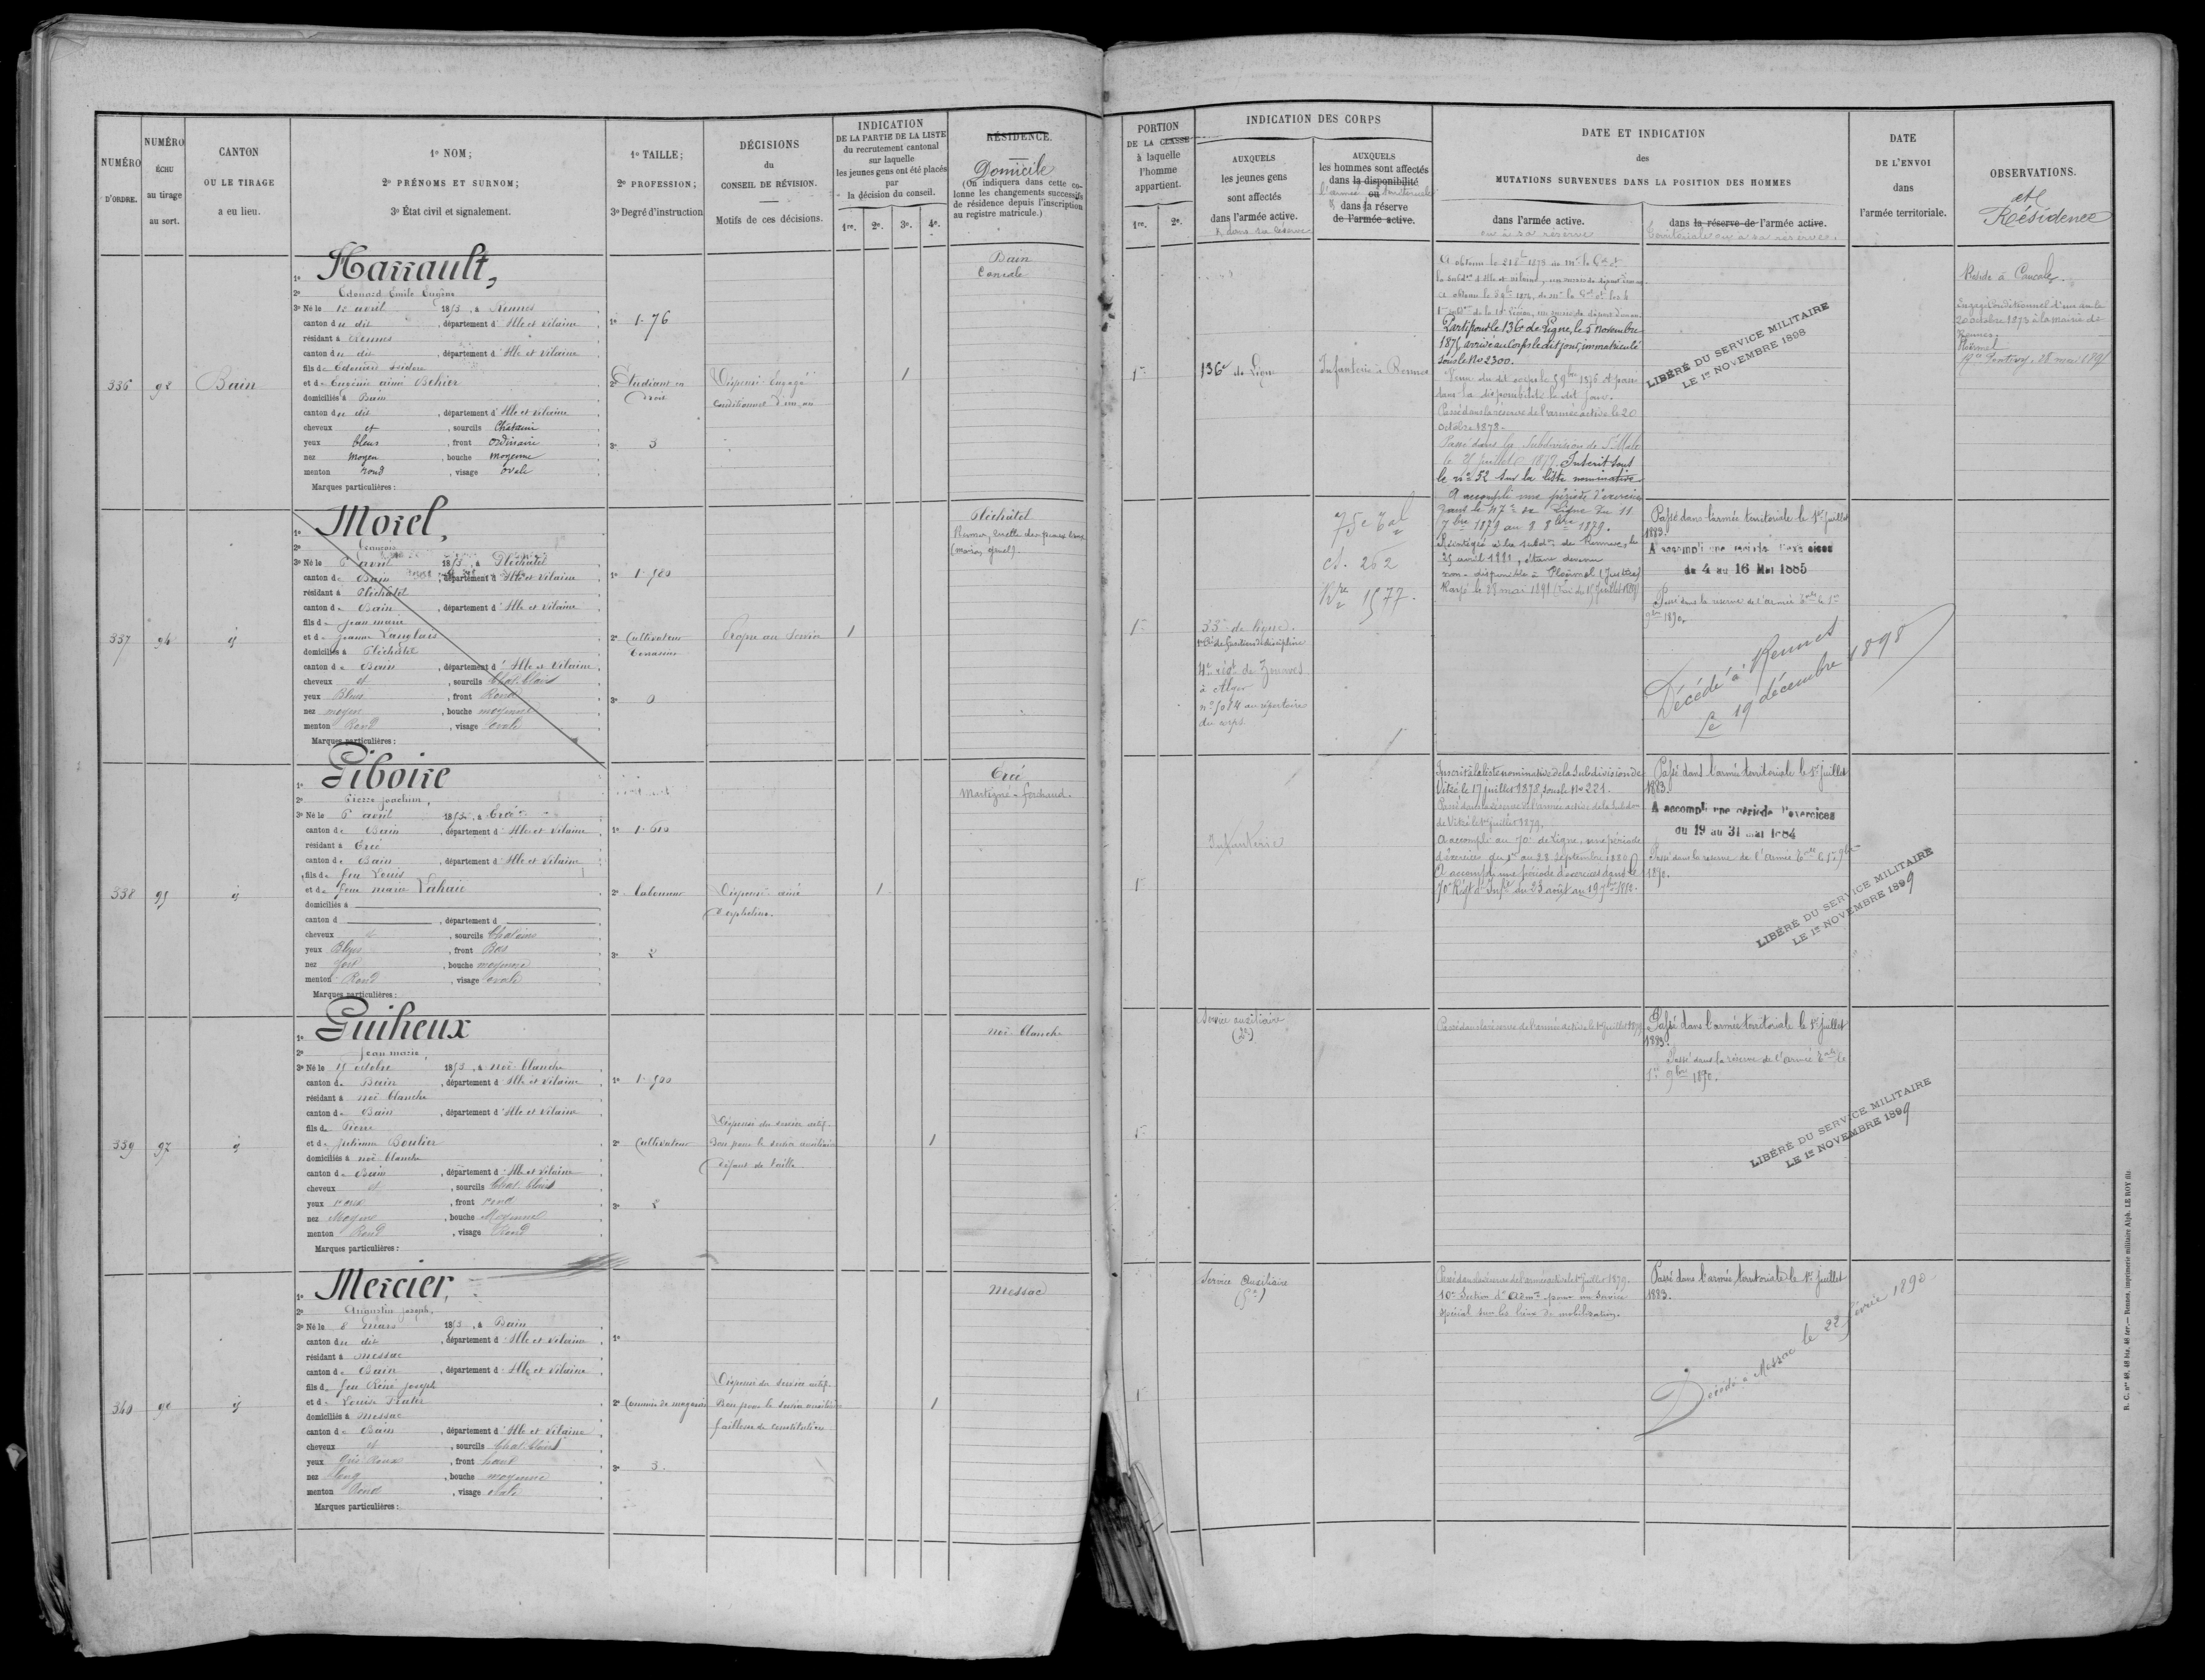 NUMÉRO D'ORDRE.
NUMÉRO ÉCHU au tirage au sort.
CANTON OU LE TIRAGE a eu lieu.
1º NOM;
2º PRÉNOMS ET SURNOM;
3º État civil et signalement.
1º TAILLE;
2º PROFESSION;
3º Degré d'instruction
DÉCISIONS
du
CONSEIL DE RÉVISION.
Motifs de ces décisions.
INDICATION
DE LA PARTIE DE LA LISTE
du recrutement cantonal
sur laquelle
les jeunes gens ont été placés
par
la décision du conseil.
1re. 2e. 3e. 4e.
RÉSIDENCE.
Domicile
(On indiquera dans cette co-
lonne les changements successifs
de résidence depuis l'inscription
au registre matricule.)
PORTION
DE LA CLASSE
à laquelle
l'homme
appartient.
1re. 2e.
INDICATION DES CORPS
AUXQUELS
les jeunes gens
sont affectés
dans l'armée active.
& dans sa réserve
AUXQUELS
les hommes sont affectés
dans la disponibilité
ou
l'armée territoriale
& dans la réserve
de l'armée active.
DATE ET INDICATION
des
MUTATIONS SURVENUES DANS LA POSITION DES HOMMES
dans l'armée active.
ou à sa réserve
dans la réserve de l'armée active.
territoriale ou à sa réserve.
DATE
DE L'ENVOI
dans
l'armée territoriale.
OBSERVATIONS.
et
Résidence
336
92
Bain
1º Harrault,
2º Edouard Emile Eugène
3º Né le 12 avril 1853, à Rennes
canton du dit, département d'Ille et Vilaine
résidant à Rennes
canton du dit, département d'Ille et Vilaine
fils de Edouard Isidore
et de Eugénie aimé Behier
domiciliés à Bain
canton du dit, département d'Ille et Vilaine
cheveux et, sourcils Châtain
yeux bleus, front ordinaire
nez moyen, bouche moyenne
menton rond, visage ovale
Marques particulières:
1º 1.76
2º Etudiant en
Droit
3º 3
Dispensé Engagé
Conditionnel d'un an
1
Bain
Cancale
1re
136e de Ligne
Infanterie à Rennes
Parti pour le 136e de Ligne, le 5 novembre
1875, arrivé au Corps le dit jour, immatriculé
sous le No 2300.
dans la disponibilité le dit jour.
Passé dans la réserve de l'armée active le 20
octobre 1878.
Passé dans la Subdivision de St Malo
le 25 juillet 1879. Inscrit sous
le no 52 sur la liste nominative
A accompli une période d'exercices
dans le 47e de Ligne du 11
7bre 1879 au 8 8bre 1879.
Réintégré à la subdon de Rennes, le
25 avril 1881, étant devenu
non-disponible à Ploërmel (Justice)
Rayé le 28 mai 1891 (Loi du 15 juillet 1889)
LIBÉRÉ DU SERVICE MILITAIRE
LE 1er NOVEMBRE 1898
Réside à Cancale.
Engagé conditionnel d'un an le
20 octobre 1873 à la mairie de
Rennes.
Ploërmel
Rn Pontivy, 28 mai 1891
337
94
id
1º Morel,
2º François
3º Né le 6 avril 1853, à Pléchatel
canton de Bain, département d'Ille et Vilaine
résidant à Pléchatel
canton de Bain, département d'Ille et Vilaine
fils de Jean marie
et de Jeanne Langlais
domiciliés à Pléchatel
canton de Bain, département d'Ille et Vilaine
cheveux et, sourcils Chat. Clairs
yeux Bleus, front Rond
nez moyen, bouche moyenne
menton Rond, visage ovale
Marques particulières:
1º 1.580
2º Cultivateur
terrassier
3º 0
Propre au Service
1
Pléchâtel
1re
33e de ligne.
4e régt de Zouaves
à Alger
no 5014 au répertoire
du corps
75e Tal
cl. 262
Rre 1577.
Passé dans l'armée territoriale le 1er juillet
1883.
A accompli une période d'exercices
du 4 au 16 Mai 1885
Passé dans la réserve de l'armée tale le 1er
9bre 1890.
Décédé à Rennes
Le 19 décembre 1898
338
95
id
1º Piboire
2º Pierre Joachim,
3º Né le 6 avril 1853, à Ercé
canton de Bain, département d'Ille et Vilaine
résidant à Ercé
canton de Bain, département d'Ille et Vilaine
fils de feu Louis
et de feue marie Lahaie
domiciliés à
canton d, département d
cheveux et, sourcils Chatains
yeux Bleus, front Bas
nez fort, bouche moyenne
menton Rond, visage ovale
Marques particulières:
1º 1.610
2º laboureur
3º 2
Dispensé ainé
d'orphelins.
1
Ercé
Martigné-ferchaud.
1re
Infanterie
Inscrit à la liste nominative de la Subdivision de
Vitré le 17 juillet 1878, sous le No 221.
Passé dans la réserve de l'armée active de la subdon
de Vitré le 1er juillet 1879.
A accompli au 70e de Ligne, une période
d'exercices du 1er au 28 septembre 1880
A accompli une période d'exercices dans le
70e Régt d'Infie du 23 août au 19 7bre 1882.
Passé dans l'armée territoriale le 1er juillet
1883.
A accompli une période d'exercices
du 19 au 31 mai 1884
Passé dans la réserve de l'armée tale le 1er 9bre
1890.
LIBÉRÉ DU SERVICE MILITAIRE
LE 1er NOVEMBRE 1899
339
97
id
1º Guiheux
2º Jean marie,
3º Né le 15 octobre 1853, à Noë blanche
canton de Bain, département d'Ille et Vilaine
résidant à Noë blanche
canton de Bain, département d'Ille et Vilaine
fils de Pierre
et de Julienne Boulier
domiciliés à Noë blanche
canton de Bain, département d'Ille et Vilaine
cheveux et, sourcils Chat. Clairs
yeux roux, front rond
nez Moyen, bouche Moyenne
menton Rond, visage Rond
Marques particulières:
1º 1.500
2º Cultivateur
3º 2
Dispensé du service actif.
Bon pour le service auxiliaire
défaut de taille
1
Noë blanche
1re
Service auxiliaire
Passé dans la réserve de l'armée active le 1er juillet 1879
Passé dans l'armée territoriale le 1er juillet
1883.
Passé dans la réserve de l'armée tale le
1er 9bre 1890.
LIBÉRÉ DU SERVICE MILITAIRE
LE 1er NOVEMBRE 1899
340
98
id
1º Mercier,
2º Augustin Joseph,
3º Né le 8 mars 1853, à Bain
canton du dit, département d'Ille et Vilaine
résidant à Messac
canton de Bain, département d'Ille et Vilaine
fils de feu René Joseph
et de Louise
domiciliés à Messac
canton de Bain, département d'Ille et Vilaine
cheveux et, sourcils Chat. Clairs
yeux Gris Roux, front haut
nez long, bouche moyenne
menton Rond, visage ovale
Marques particulières:
1º
2º Commis de magasin
3º 3.
Dispensé du service actif.
Bon pour le service auxiliaire
faiblesse de constitution
1
Messac
1re
Service auxiliaire
Passé dans la réserve de l'armée active le 1er juillet 1879.
10e Section d'Admon pour un service
spécial sur les lieux de mobilisation.
Passé dans l'armée territoriale le 1er juillet
1883.
Décédé à Messac le 22 février 1890
R. C. nos 46, 46 bis, 46 ter. — Rennes, imprimerie militaire Alph. LE ROY fils